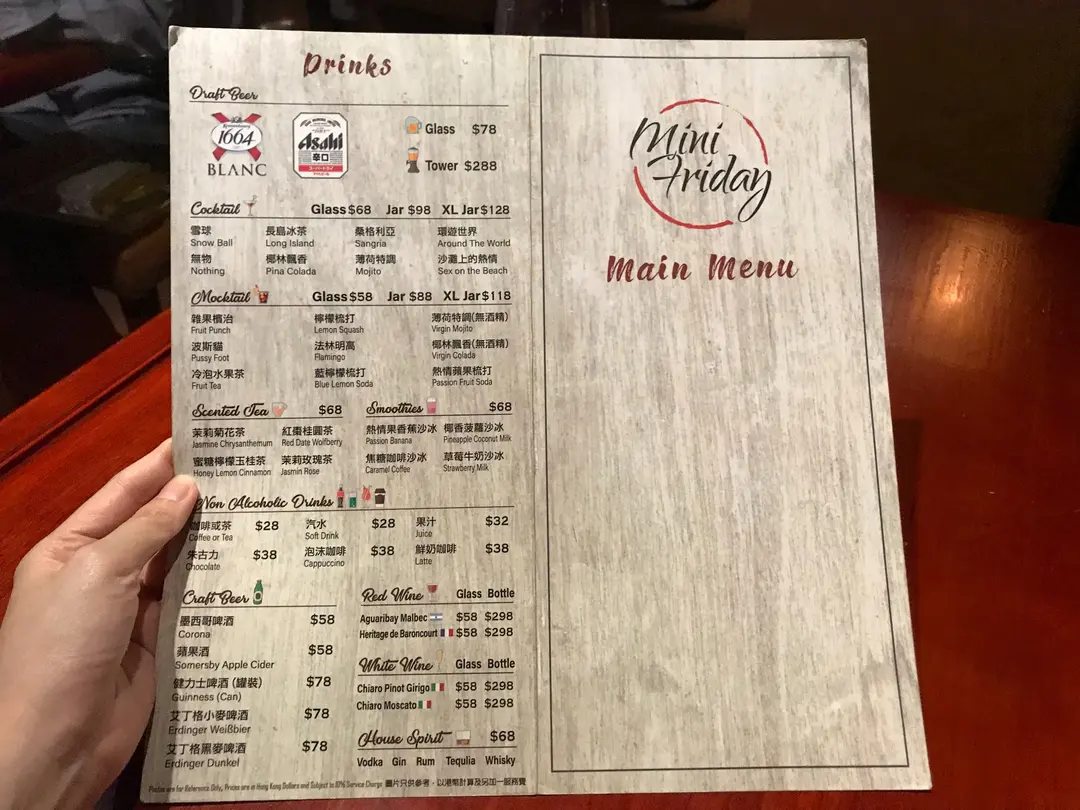 Drinks
Draft Beer
Kronenbourg
1664
BLANC
Asahi
辛口
Glass $78
Tower $288
Cocktail Glass $68 Jar $98 XL Jar $128
雪球 長島冰茶 桑格利亞 環遊世界
Snow Ball Long Island Sangria Around The World
無物 椰林飄香 薄荷特調 沙灘上的熱情
Nothing Pina Colada Mojito Sex on the Beach
Mocktail Glass $58 Jar $88 XL Jar $118
雜果賓治 檸檬梳打 薄荷特調(無酒精)
Fruit Punch Lemon Squash Virgin Mojito
波斯貓 法林明高 椰林飄香(無酒精)
Pussy Foot Flamingo Virgin Colada
冷泡水果茶 藍檸檬梳打 熱情蘋果梳打
Fruit Tea Blue Lemon Soda Passion Fruit Soda
Scented Tea $68
茉莉菊花茶 紅棗桂圓茶
Jasmine Chrysanthemum Red Date Wolfberry
蜜糖檸檬玉桂茶 茉莉玫瑰茶
Honey Lemon Cinnamon Jasmin Rose
Smoothies $68
熱情果香蕉沙冰 椰香菠蘿沙冰
Passion Banana Pineapple Coconut Milk
焦糖咖啡沙冰 草莓牛奶沙冰
Caramel Coffee Strawberry Milk
Non Alcoholic Drinks
咖啡或茶 $28 汽水 $28 果汁 $32
Coffee or Tea Soft Drink Juice
朱古力 $38 泡沫咖啡 $38 鮮奶咖啡 $38
Chocolate Cappuccino Latte
Craft Beer
墨西哥啤酒 $58
Corona
蘋果酒 $58
Somersby Apple Cider
健力士啤酒 (罐裝) $78
Guinness (Can)
艾丁格小麥啤酒 $78
Erdinger Weißbier
艾丁格黑麥啤酒 $78
Erdinger Dunkel
Red Wine Glass Bottle
Aguaribay Malbec $58 $298
Heritage de Baroncourt $58 $298
White Wine Glass Bottle
Chiaro Pinot Girigo $58 $298
Chiaro Moscato $58 $298
House Spirit $68
Vodka Gin Rum Tequlia Whisky
Photos are for Reference Only, Prices are in Hong Kong Dollars and Subject to 10% Service Charge 圖片只供參考，以港幣計算及另加一服務費
Mini
Friday
Main Menu